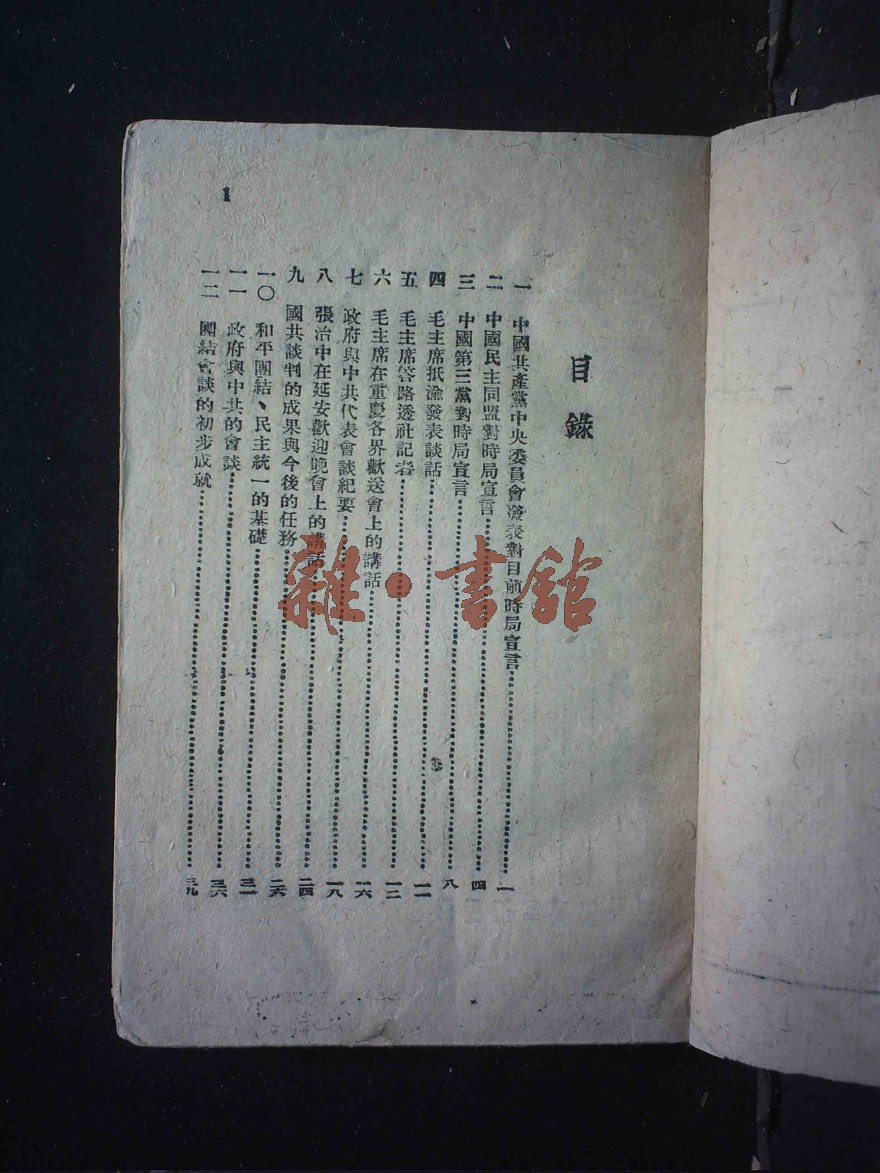 目錄
一 中國共產黨中央委員會發表對目前時局宣言 一
二 中國民主同盟對時局宣言 四
三 中國第三黨對時局宣言 八
四 毛主席抵渝發表談話 一一
五 毛主席答路透社記者 一二
六 毛主席在重慶各界歡送會上的講話 一六
七 政府與中共代表會談紀要 一八
八 張治中在延安歡迎晚會上的講話 二四
九 國共談判的成果與今後的任務 二六
一〇 和平團結、民主統一的基礎 三一
一一 政府與中共的會談 三六
一二 團結會談的初步成就 三九
1
雜·書館